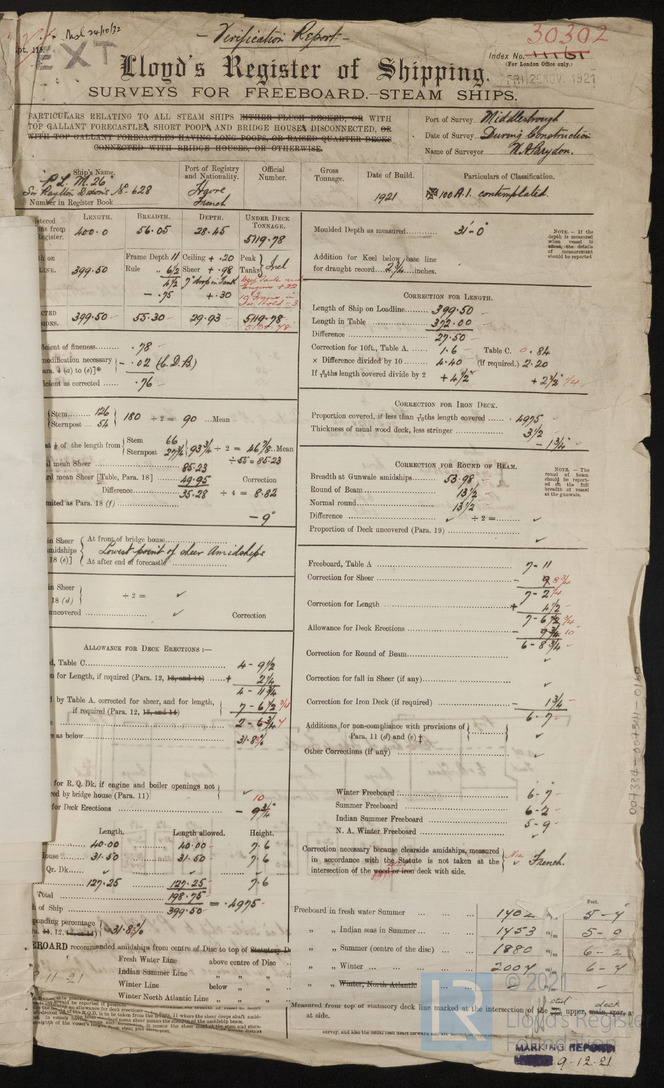 - Verification Report -
30302
EXT
Index No. 11161
(For London Office only.)
Lloyd's Register of Shipping.
FRI 25 NOV 1921
SURVEYS FOR FREEBOARD.—STEAM SHIPS.
PARTICULARS RELATING TO ALL STEAM SHIPS EITHER FLUSH DECKED, OR WITH
TOP GALLANT FORECASTLES, SHORT POOPS, AND BRIDGE HOUSES DISCONNECTED, OR
WITH TOP GALLANT FORECASTLES HAVING LONG POOPS, OR RAISED QUARTER DECKS
CONNECTED WITH BRIDGE HOUSES, OR OTHERWISE.
Port of Survey Middlesbrough
Date of Survey During Construction
Name of Surveyor
Ship's Name.
P.L.M. 26
Sir Raylton Dixon's No 628
Number in Register Book
Port of Registry and Nationality.
Havre
French
Official Number.
Gross Tonnage.
Date of Build.
1921
Particulars of Classification.
100 A.1. contemplated.
LENGTH. BREADTH. DEPTH. UNDER DECK TONNAGE.
400.0 56.05 28.45 5119.78
399.50
Frame Depth 11
Rule 6 1/2
4 1/2
- .75
Ceiling + .20
Sheer + .98
+ .30
Peak Tanks Incl
399.50 55.30 29.93 5119.78
Moulded Depth as measured 31'-0"
Addition for Keel below base line
for draught record 2 3/4 inches.
NOTE.—If the depth is measured when vessel is afloat, the details of measurement should be reported
CORRECTION FOR LENGTH.
Length of Ship on Loadline 399.50
Length in Table 372.00
Difference 27.50
Correction for 10ft., Table A. 1.6 Table C. 0.84
× Difference divided by 10 4.40 (if required.) 2.20
If 6/10ths length covered divide by 2 + 4 1/2 + 2 1/2 1/4
CORRECTION FOR IRON DECK.
Proportion covered, if less than 7/10ths length covered .4975
Thickness of usual wood deck, less stringer 3 1/2
- 1 3/4
CORRECTION FOR ROUND OF BEAM.
Breadth at Gunwale amidships 53.98
Round of Beam 13 1/2
Normal round 13 1/2
Difference ÷ 2 =
Proportion of Deck uncovered (Para. 19)
NOTE.—The round of beam should be reported on the full breadth of vessel at the gunwale.
cient of fineness .78
modification necessary
- .02 (C.D.B)
para. 3 (a) to (e)]*
cient as corrected .76
Stem 126
Sternpost 54
180 ÷ 2 = 90 Mean
at 1/8 of the length from
Stem 66
Sternpost 27 3/4
93 3/4 ÷ 2 = 46 7/8 Mean
÷ 55 = 85.23
l mean Sheer 85.23
rd mean Sheer [Table, Para. 18] 49.95 Correction
Difference 35.28 ÷ 4 = 8.82
mited as Para. 18 (f)
- 9"
in Sheer
midships
18 (e)]
At front of bridge house
Lowest point of sheer Amidships
At after end of forecastle
in Sheer
18 (d) ÷ 2 =
uncovered Correction
ALLOWANCE FOR DECK ERECTIONS:—
d, Table C. 4 - 9 1/2
n for Length, if required (Para. 12, 13, and 14) + 2 1/4
4 - 11 3/4
d by Table A. corrected for sheer, and for length,
if required (Para. 12, 13, and 14) 7 - 6 1/2 3/4
2 - 6 3/4
as below 31.8%
for R. Q. Dk, if engine and boiler openings not
red by bridge house (Para. 11)
10
for Deck Erections - 9 3/4"
Length. Length allowed. Height.
40.00 40.00 7.6
house 31.50 31.50 7.6
Qr. Dk.
127.25 127.25 7.6
Total 198.75
h of Ship 399.50 = .4975
ponding percentage
31.8%
Freeboard, Table A 7-11
Correction for Sheer - 9 8 3/4
7-2 1/4
Correction for Length + 4 1/2
7-6 1/2 3/4
Allowance for Deck Erections - 9 3/4 10
6-8 3/4
Correction for Round of Beam
Correction for fall in Sheer (if any)
Correction for Iron Deck (if required) - 1 3/4
6-7
Additions for non-compliance with provisions of
Para. 11 (d) and (e) ‡
Other Corrections (if any)
Winter Freeboard 6-7
Summer Freeboard 6-2
Indian Summer Freeboard 5-9
N. A. Winter Freeboard
Correction necessary because clearside amidships, measured
in accordance with the Statute is not taken at the
intersection of the wood or iron deck with side.
French
BOARD recommended amidships from centre of Disc to top of Statutory D
Fresh Water Line above centre of Disc
Indian Summer Line " "
Winter Line below "
Winter North Atlantic Line " "
Feet.
Freeboard in fresh water Summer 1402 5-7
" Indian seas in Summer 1753 5-9
" " Summer (centre of the disc) 1880 6-2
" " Winter 2007 6-7
" " Winter, North Atlantic
Measured from top of statutory deck line marked at the intersection of the upper, main, spar,
at side.
© 2021
Lloyd's Register
Foundation
MARKING REPORT
9-12-21